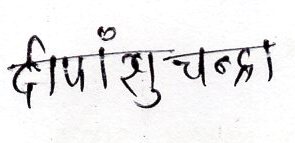 दीपाँशु चन्द्रा